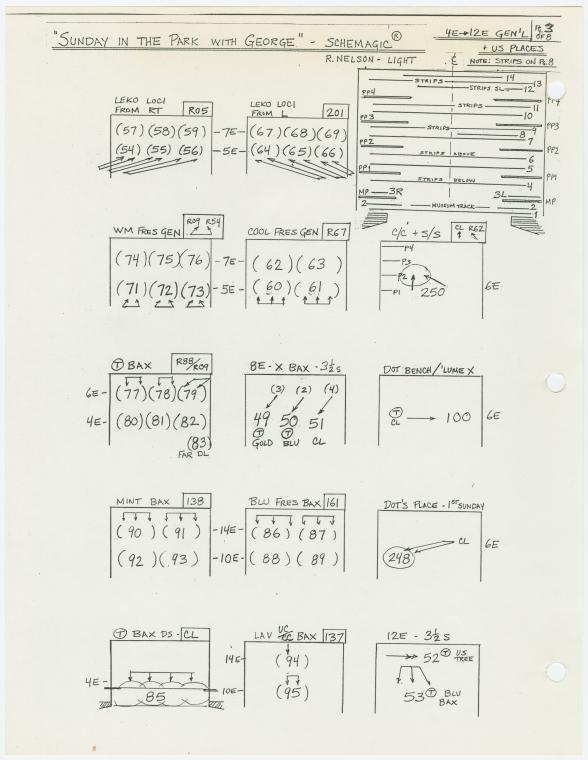 "SUNDAY IN THE PARK WITH GEORGE" - SCHEMAGIC ®
R. NELSON - LIGHT
4E→12E GEN'L
PG. 3 OF 8
+ US PLACES
NOTE: STRIPS ON PG. 8
14
STRIPS
13
STRIPS SL
12
PP4
PP4
11
STRIPS
10
PP3
PP3
STRIPS
9
8
7
PP2
PP2
STRIPS ABOVE
6
5
PP1
PP1
STRIPS BELOW
4
MP
3R
3L
MP
2
MUSEUM TRACK
2
1
LEKO LOCI
FROM RT
R05
(57) (58) (59)
-7E-
(54) (55) (56)
-5E-
LEKO LOCI
FROM L
201
(67) (68) (69)
(64) (65) (66)
WM FRES GEN
R09 R54
(74) (75) (76)
-7E-
(71) (72) (73)
-5E-
COOL FRES GEN
R67
(62) (63)
(60) (61)
C/C + S/S
CL R62
P4
P3
P2
P1
250
6E
T BAX
R88/R09
6E-
(77) (78) (79)
4E-
(80) (81) (82)
(83)
FAR DL
8E - X BAX - 3½ S
(3) (2) (4)
49 50 51
T GOLD
T BLU
CL
DOT BENCH/'LUME X
T
CL
100
6E
MINT BAX
138
(90) (91)
-14E-
(92) (93)
-10E-
BLU FRES BAX
161
(86) (87)
(88) (89)
DOT'S PLACE - 1ST SUNDAY
CL
248
6E
T BAX DS -
CL
4E-
85
-10E-
LAV UC BAX
137
14E-
(94)
(95)
12E - 3½ S
52 T US TREE
53 T BLU BAX